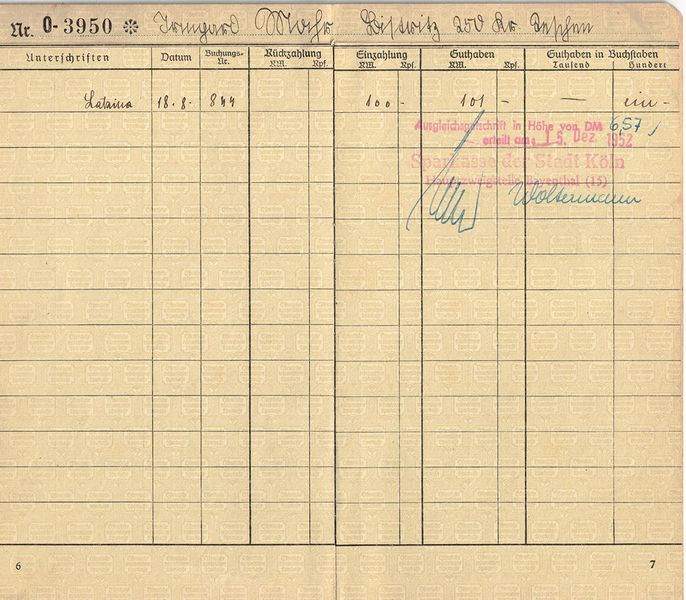 Nr. 0-3950 ✻ Irmgard Mohr, Bistritz 250 Kr. Teschen
Unterschriften Datum Buchungs-Nr. Rückzahlung RM. Rpf. Einzahlung RM. Rpf. Guthaben RM. Rpf. Guthaben in Buchstaben Tausend Hundert
18.8. 844 100 - 101 - — ein -
Ausgleichsgutschrift in Höhe von DM 6,57
erteilt am 15. Dez. 1952
Sparkasse der Stadt Köln
Hauptzweigstelle Bayenthal (15)
Woltermann
6 7